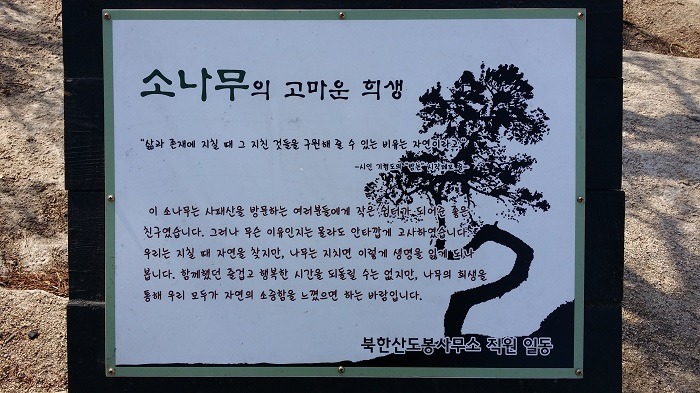 소나무의 고마운 희생
"삶과 존재에 지칠 때 그 지친 것들을 구원해 줄 수 있는 비유는 자연이라고.
-시인 기형도의
이 소나무는 사패산을 방문하는 여러분들에게 작은 쉼터가 되어준 좋은
친구였습니다. 그러나 무슨 이유인지는 몰라도 안타깝게 고사하였습니다.
우리는 지칠 때 자연을 찾지만, 나무는 지치면 이렇게 생명을 잃게 되나
봅니다. 함께했던 즐겁고 행복한 시간을 되돌릴 수는 없지만, 나무의 희생을
통해 우리 모두가 자연의 소중함을 느꼈으면 하는 바람입니다.
북한산도봉사무소 직원 일동